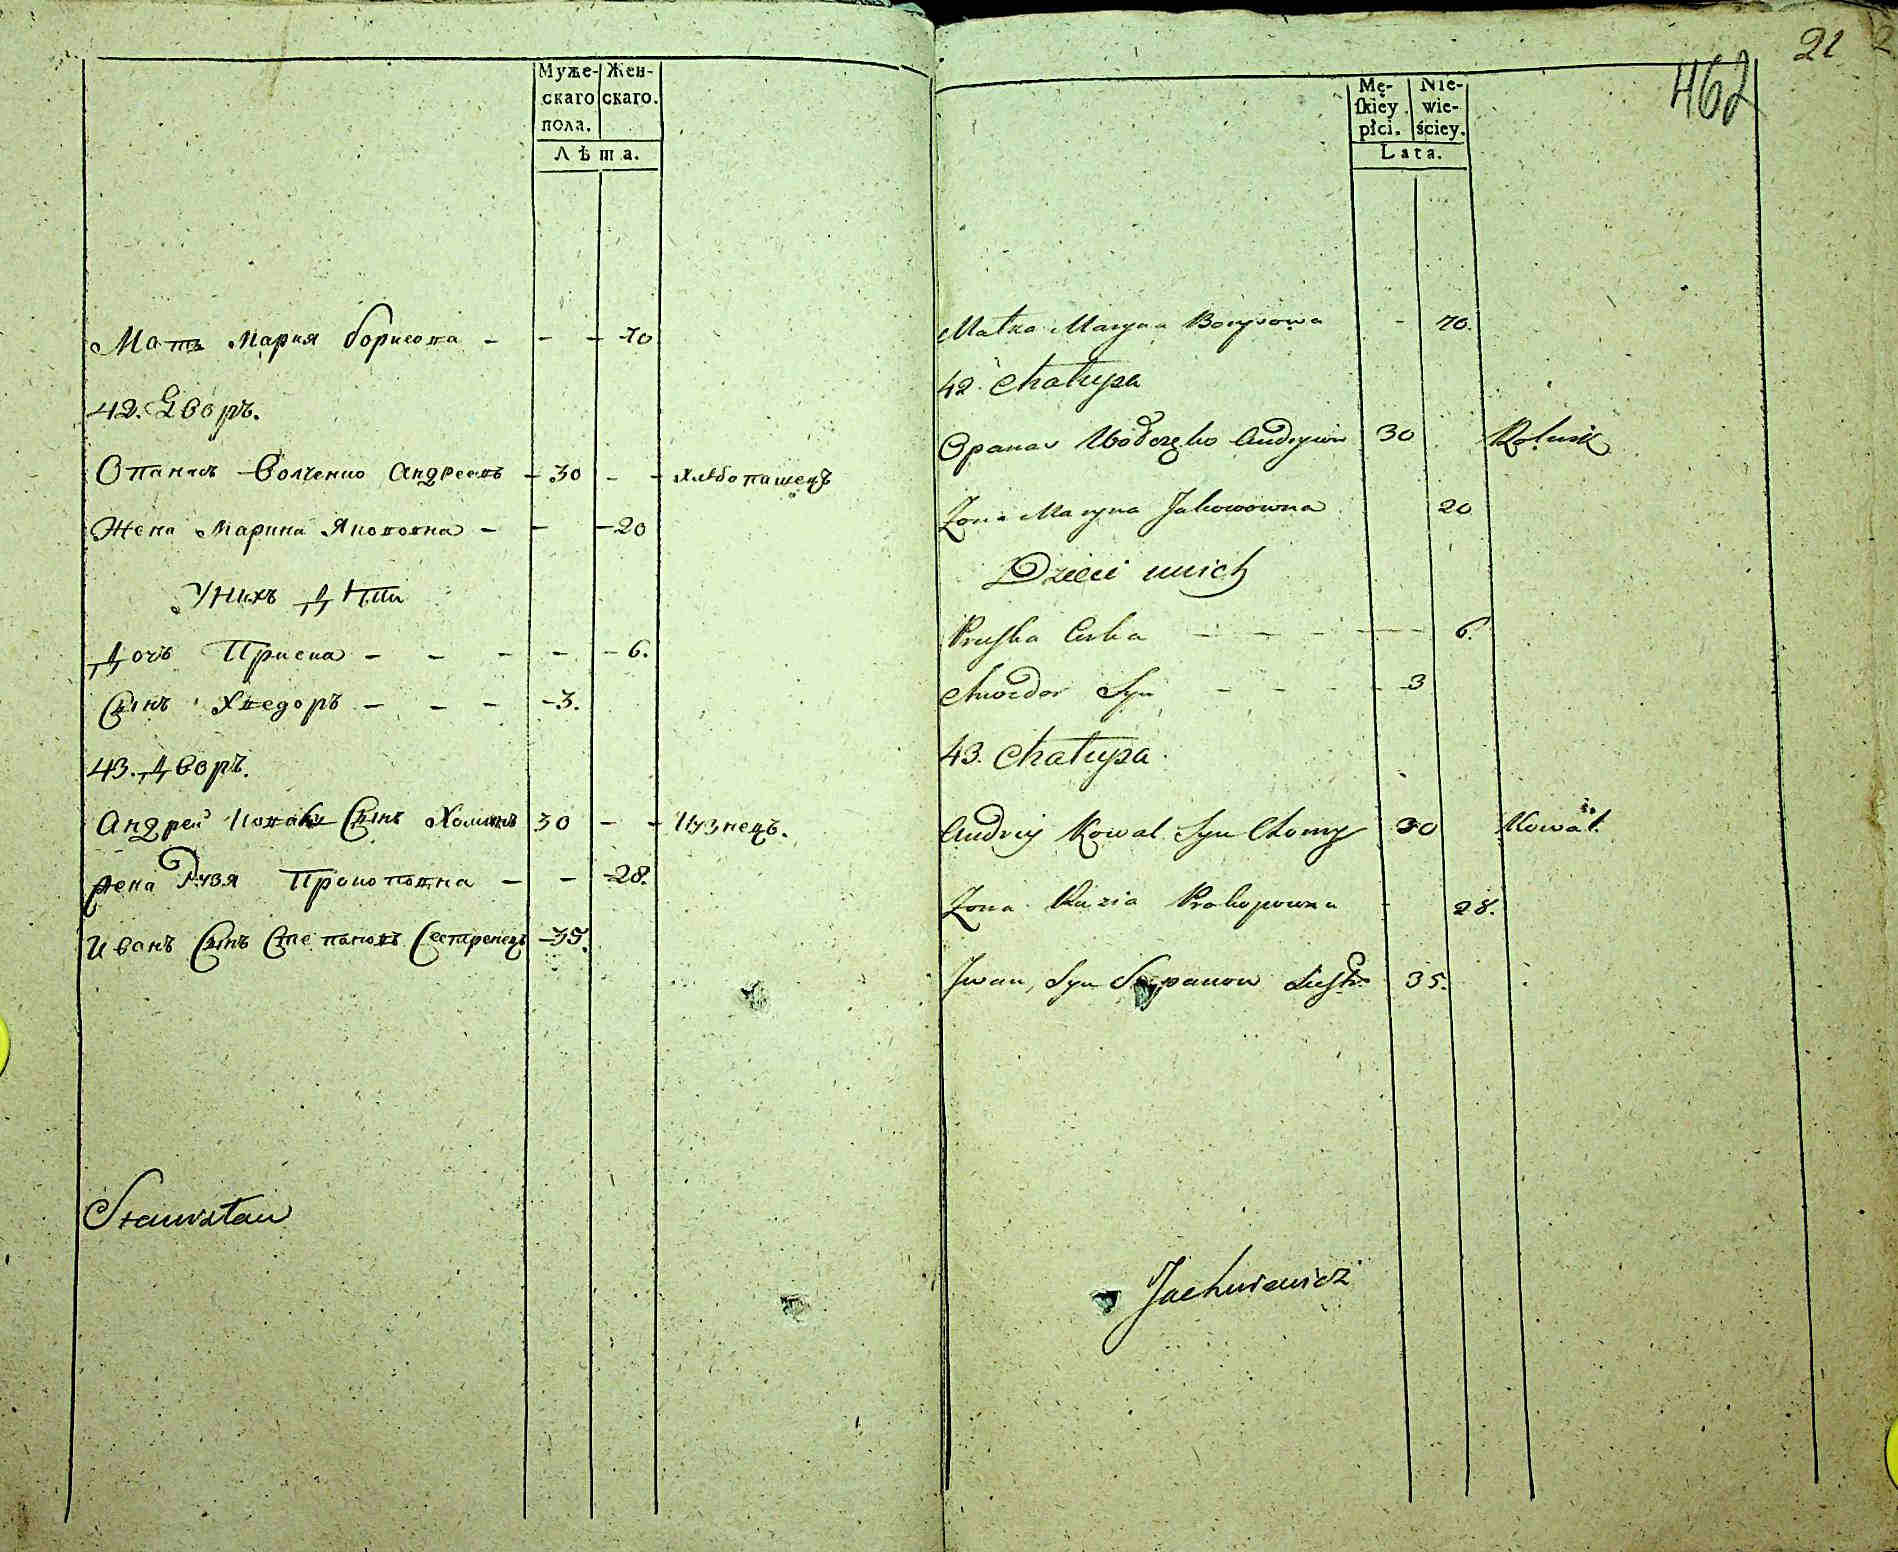 Муже- Жен-
скаго скаго.
пола.
Лѣта.
Мать Мария Борисова - - - 70
42. Дворъ.
Опанасъ Волченко Андреевъ - 30 - - хлѣбопашецъ
Жена Марина Якововна - - - 20
У нихъ дѣти
Дочъ Приска - - - - - 6.
Сынъ Хведоръ - - - - 3.
43. Дворъ.
Андрей Коваль Сынъ Хоминъ 30 - - Кузнецъ.
Жена Рузя Прокоповна - - - 28.
Иванъ Сынъ Степановъ Сестренецъ - 35.
Stanisław
21
462
Mę- Nie-
skiey wie-
płci. ściey.
Lata.
Matka Maryna Borysowa - 70.
42. Chałupa
Opanas Andryiow 30 Rolnik
Zona Maryna Jakowowna 20
Dzieci unich
Pruska Curka - - - - - 6.
Chwedor Syn - - - - 3
43. Chałupa.
Andriy Kowal Syn Chomy 30 Kowal.
Zona Ruzia Prokopowna - 28.
Jwan, Syn Stepanow 35.
Jachniewicz